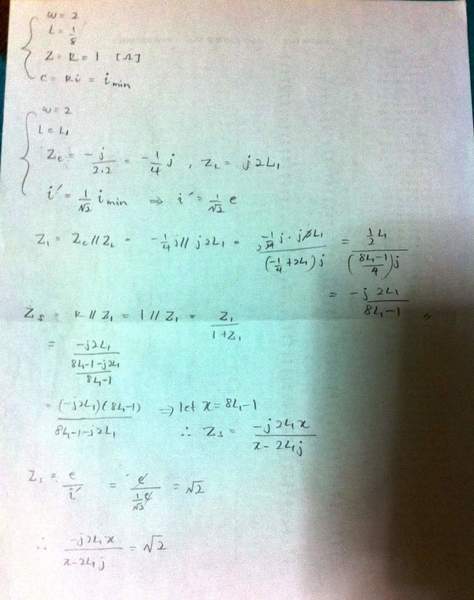 ω = 2
L = 1/8
Z = R = 1 [Ω]
e = Ri = i min
ω = 2
L = L₁
Zc = -j/2·2 = -1/4 j , ZL = j2L₁
i' = 1/√2 i min ⇒ i' = 1/√2 e
Z₁ = Zc // ZL = -1/4 j // j2L₁ = -1/4 j · j2L₁ / (-1/4 + 2L₁)j = 1/2 L₁ / (8L₁-1 / 4)j
= -j 2L₁ / 8L₁-1 //
Zs = R // Z₁ = 1 // Z₁ = Z₁ / 1+Z₁
= -j2L₁ / 8L₁-1-j2L₁ / 8L₁-1
= (-j2L₁)(8L₁-1) / 8L₁-1-j2L₁ ⇒ let x = 8L₁-1
∴ Zs = -j2L₁x / x-2L₁j
Zs = e / i' = e / 1/√2 e = √2
∴ -j2L₁x / x-2L₁j = √2